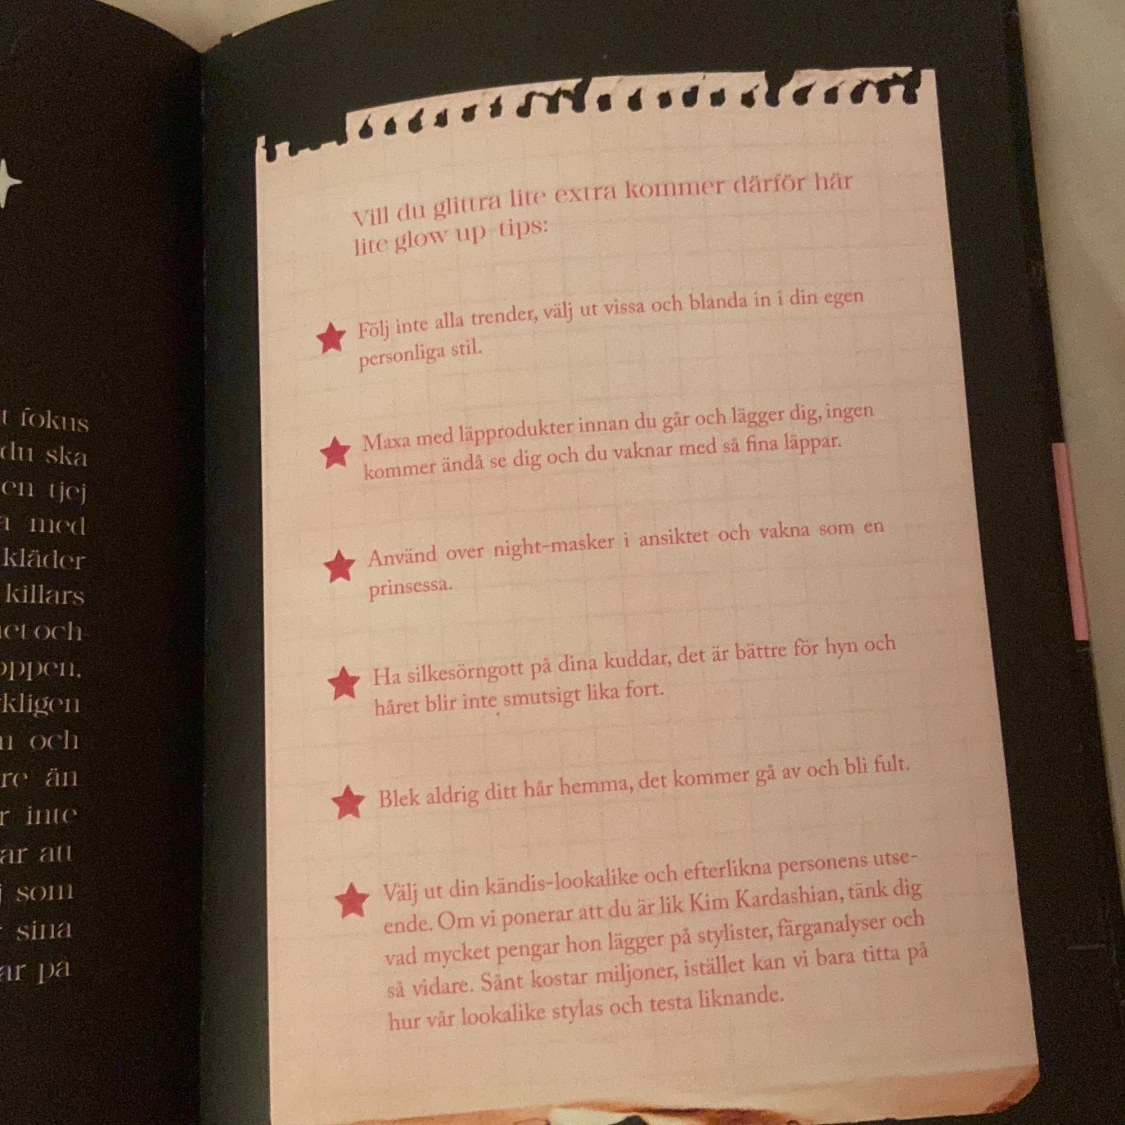 t fokus
du ska
en tjej
med
kläder
killars
och
kligen
och
re än
r inte
ar att
som
sina
ar på
Vill du glittra lite extra kommer därför här
lite glow up-tips:
Följ inte alla trender, välj ut vissa och blanda in i din egen
personliga stil.
Maxa med läpprodukter innan du går och lägger dig, ingen
kommer ändå se dig och du vaknar med så fina läppar.
Använd over night-masker i ansiktet och vakna som en
prinsessa.
Ha silkesörngott på dina kuddar, det är bättre för hyn och
håret blir inte smutsigt lika fort.
Blek aldrig ditt hår hemma, det kommer gå av och bli fult.
Välj ut din kändis-lookalike och efterlikna personens utse-
ende. Om vi ponerar att du är lik Kim Kardashian, tänk dig
vad mycket pengar hon lägger på stylister, färganalyser och
så vidare. Sånt kostar miljoner, istället kan vi bara titta på
hur vår lookalike stylas och testa liknande.